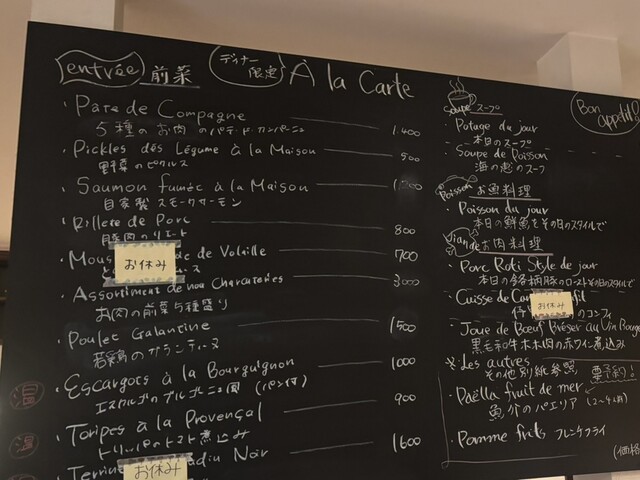 entrée 前菜
ディナー限定
À la Carte
・Pâté de Compagne
5種のお肉のパテ・ド・カンパーニュ 1,400
・Pickles des Légume à la Maison
野菜のピクルス 500
・Saumon fumée à la Maison
自家製 スモークサーモン
・Rillere de Porc
豚肉のリエット 800
・Mous de Volaille 700
お休み
・Assortiment de nos Charcuteries 3000
お肉の前菜5種盛り
・Poulet Galantine 1500
若鶏のガランティーヌ
温 ・Escargots à la Bourguignon 1000
エスカルゴのブルゴーニュ風 (パン付)
温 ・Toripes à la Provençal 900
トリッパのトマト煮込み
・Terrine Noir 1600
お休み
Bon appetit!
Soupe スープ
・Potage du jour
本日のスープ
・Soupe de Poisson
海の恵のスープ
Poisson お魚料理
・Poisson du jour
本日の鮮魚をその日のスタイルで
Viande お肉料理
・Porc Roti Style de jour
本日の銘柄豚のローストその日のスタイルで
・Cuisse de
お休み
のコンフィ
・Joue de Bœuf Bréser au Vin Rouge
黒毛和牛ホホ肉の赤ワイン煮込み
※des autres
その他別紙参照 要予約!
・Paëlla fruit de mer
魚介のパエリア (2〜4人前)
・Pomme frits フレンチフライ
(価格